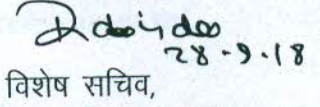 28-9-18
विशेष सचिव,